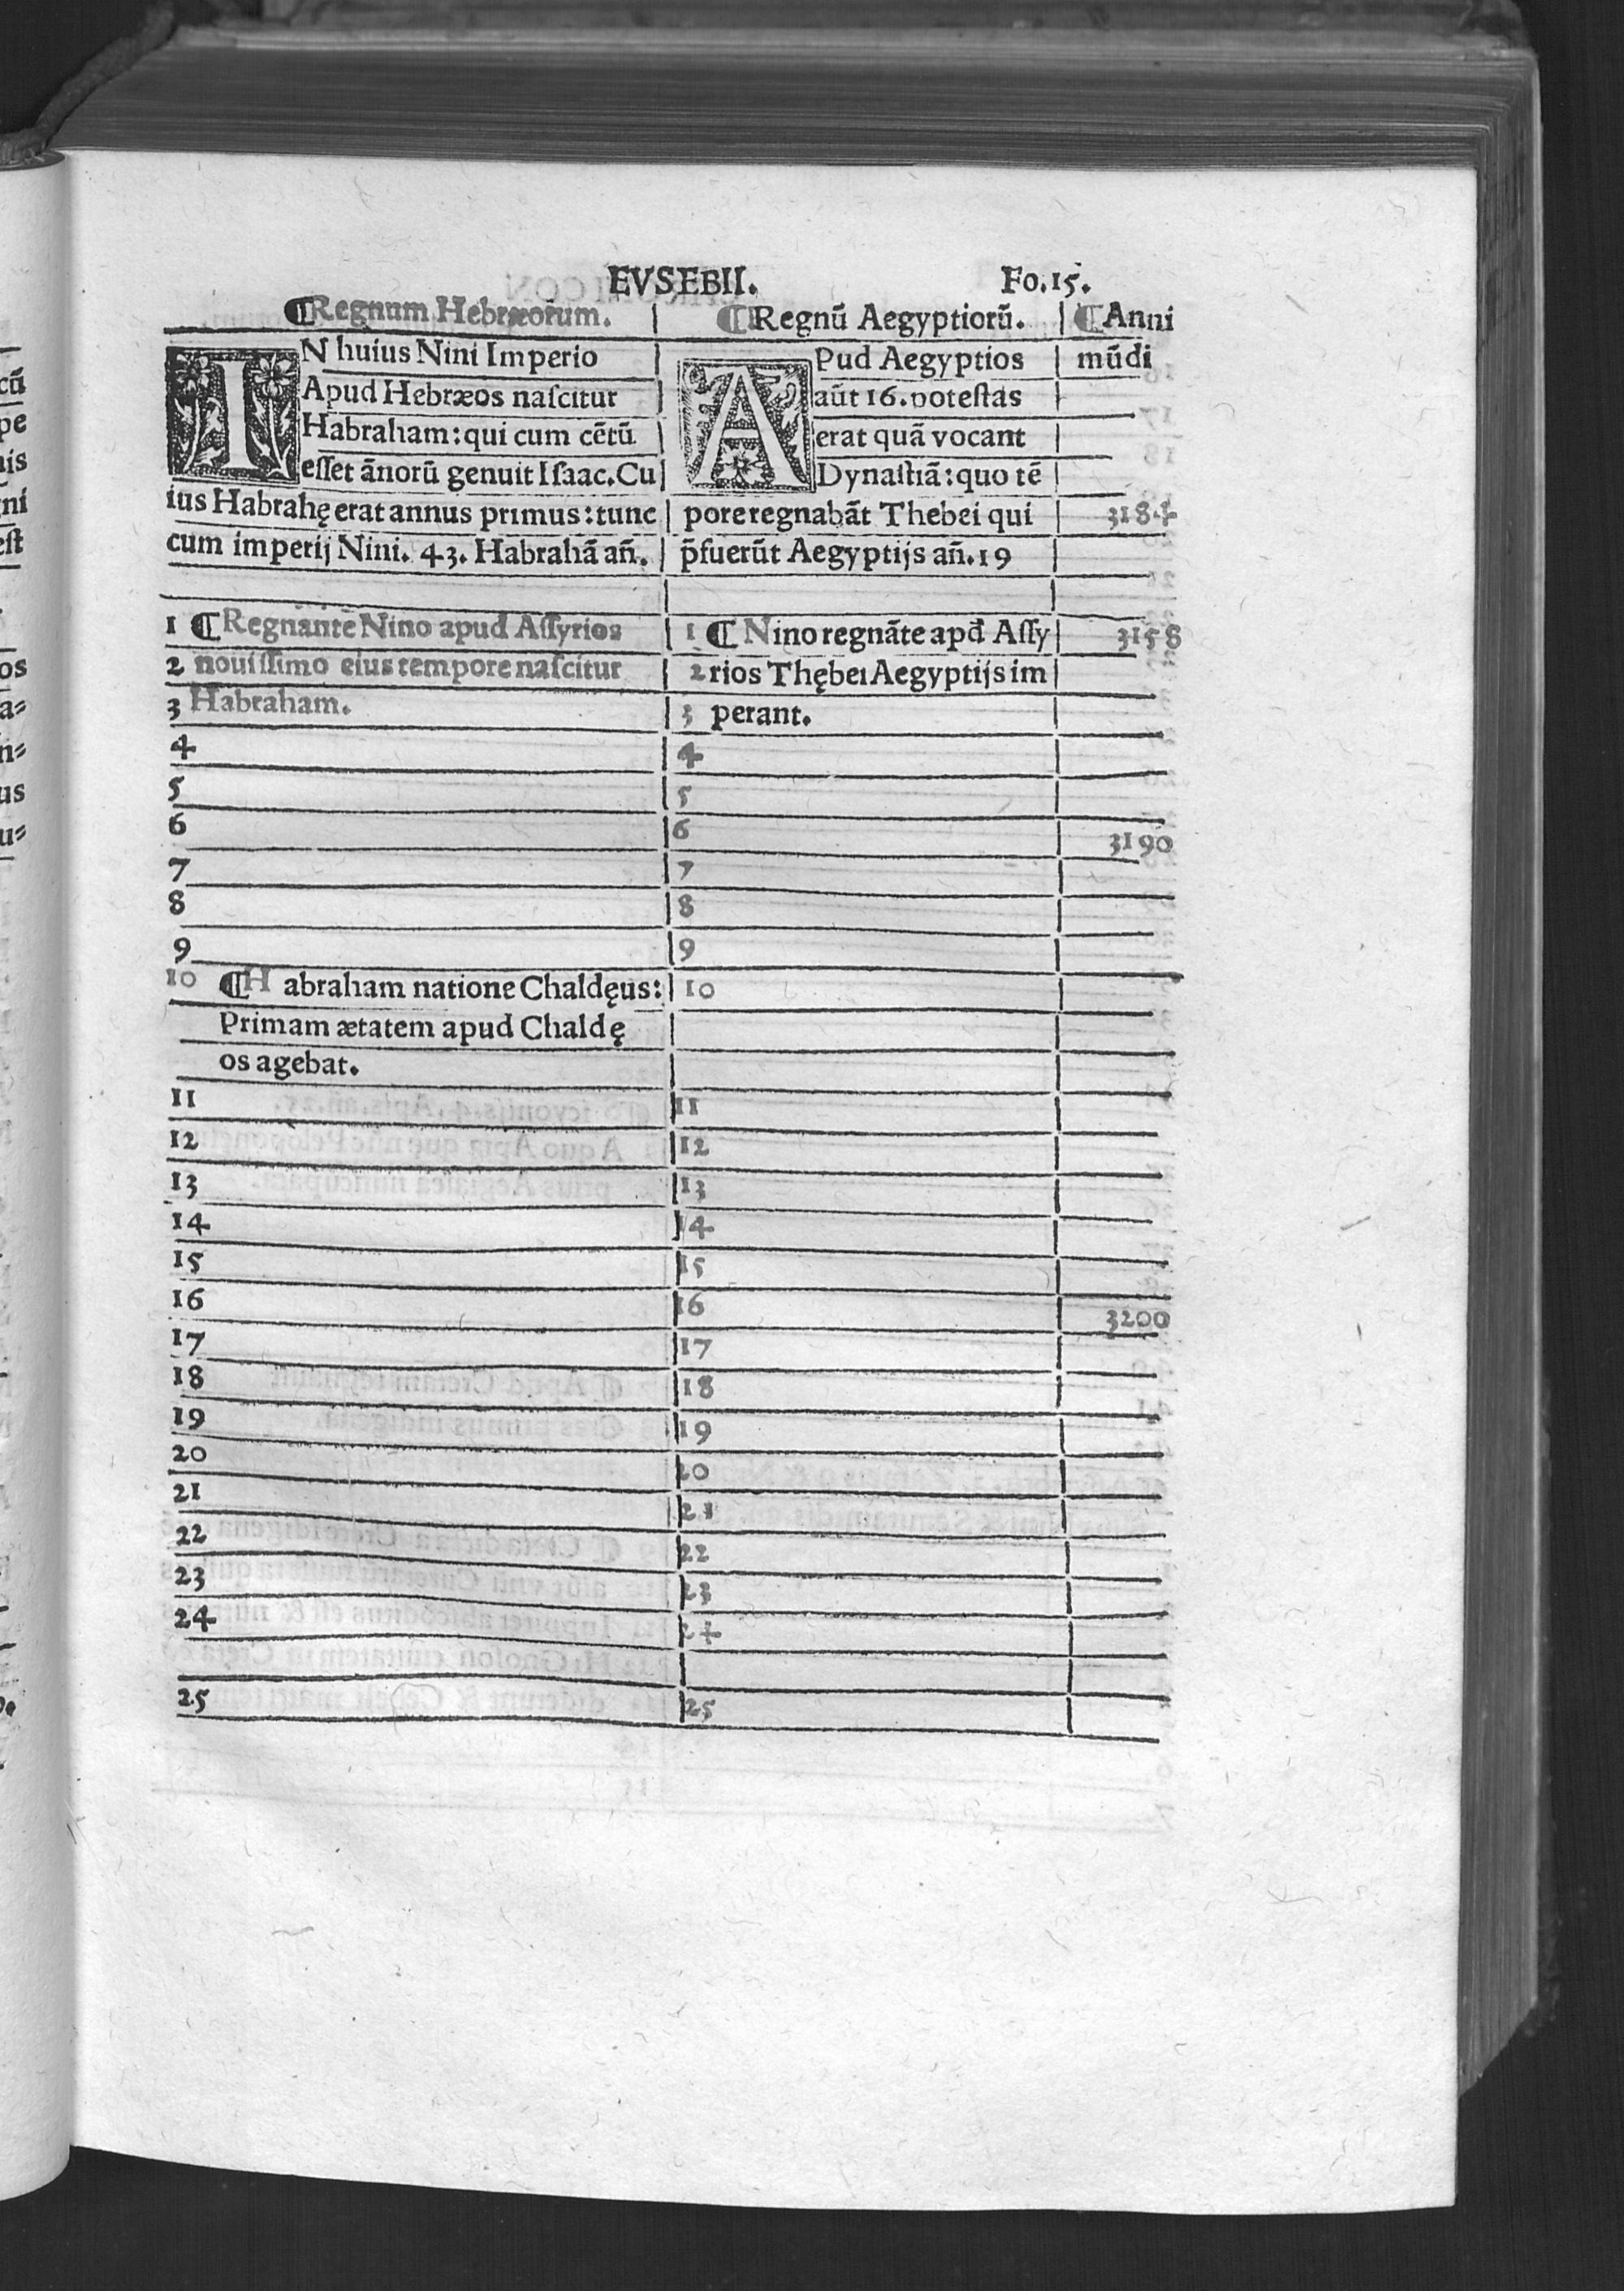 EVSEBII. Fo.15.
¶Regnum Hebræorum. ¶Regnū Aegyptiorū. ¶Anni
IN huius Nini Imperio
Apud Hebræos naſcitur
Habraham:qui cum cētū
eſſet ānorū genuit Iſaac.Cu
ius Habrahę erat annus primus:tunc
cum imperij Nini. 43. Habrahā añ.
APud Aegyptios
aūt 16.poteſtas
erat quā vocant
Dynaſtiā:quo tē
pore regnabāt Thebei qui
p̄fuerūt Aegyptijs añ.19
mūdi
3184
1 ¶Regnante Nino apud Aſſyrios
2 nouiſſimo eius tempore naſcitur
3 Habraham.
4
5
6
7
8
9
10 ¶Habraham natione Chaldęus:
Primam ætatem apud Chaldę
os agebat.
11
12
13
14
15
16
17
18
19
20
21
22
23
24
25
1 ¶Nino regnāte apđ Aſſy
2 rios Thębei Aegyptijs im
3 perant.
4
5
6
7
8
9
10
11
12
13
14
15
16
17
18
19
20
21
22
23
24
25
3158
3190
3200